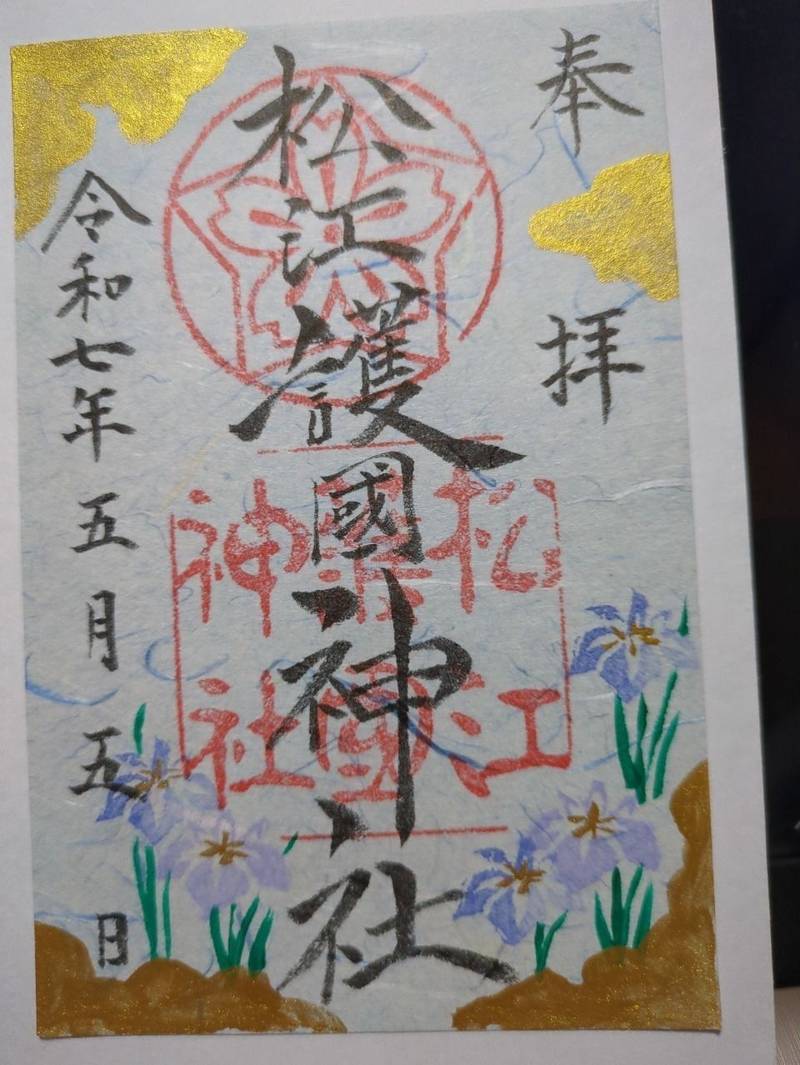 奉拝
松江護國神社
令和七年五月五日
松江
護國
神社